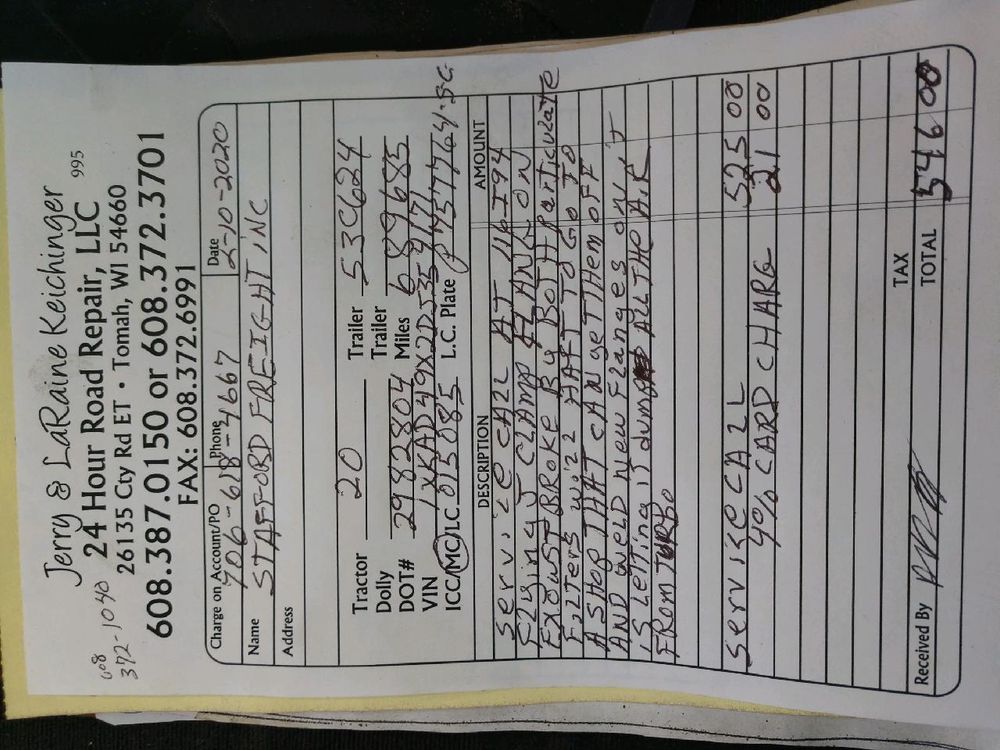 Jerry & LaRaine Keichinger
24 Hour Road Repair, LLC 995
26135 Cty Rd ET • Tomah, WI 54660
608.387.0150 or 608.372.3701
FAX: 608.372.6991
608
372-1040
Charge on Account/PO Phone Date
706-618-4667 2-10-2020
Name STAFFORD FREIGHT INC
Address
Tractor 20 Trailer 53C624
Dolly Trailer
DOT# 2982804 Miles 689685
VIN 1XKAD49X2DJ354171
ICC/MC/LC 015085 L.C. Plate P457764.SC
DESCRIPTION AMOUNT
service CALL AT 116 I94
FLYING J CLAMP FLANGE ON
EXOUST BROKE By BOTH Particulate
FilTers will HAFT TO GO TO
A shop THAT CAN geT THEM OFF
AND weLD New FLANges ON iT
is LeTTing iT dump ALL THE AIR
FROM TURBO
Service CALL 525 00
4% CARD CHARG 21 00
TAX
Received By TOTAL 546 00